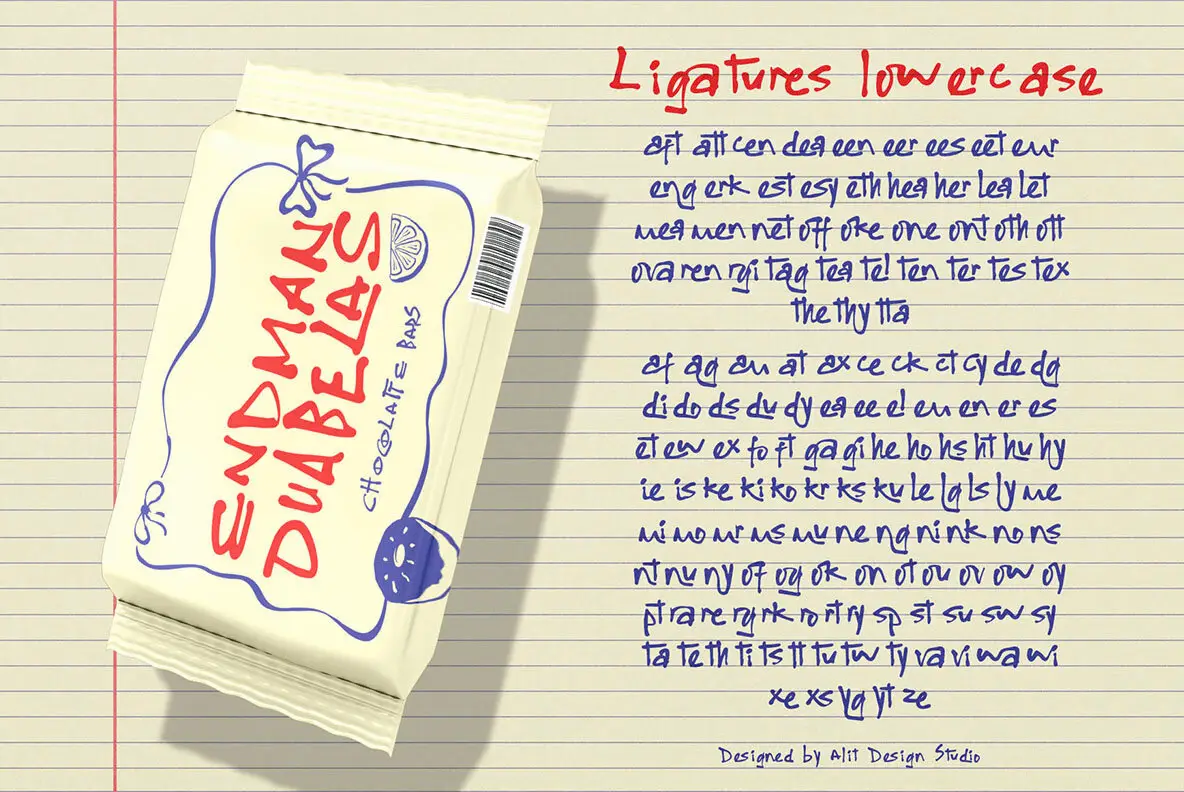 ENDMAN
DUABELAS
CHOCOLATTE BARS
Ligatures lowercase
aft att cen dea een eer ees eet eur
eng erk est esy eth hea her lea let
mea men net off oke one ont oth ott
ova ren rgi tag tea tel ten ter tes tex
the thy tta
af ag au at ax ce ck ct cy de dg
di do ds du dy ea ee el eu en er es
et ew ex fo ft ga gi he ho hs ht hu hy
ie is ke ki ko kr ks ku le lg ls ly me
mi mo mr ms mu ne ng ni nk no ns
nt nu ny of og ok on ot ou ov ow oy
pt ra re rg rk ro rt ry sp st su sw sy
ta te th ti ts tt tu tw ty va vi wa wi
xe xs yg yt ze
Designed by Alit Design Studio